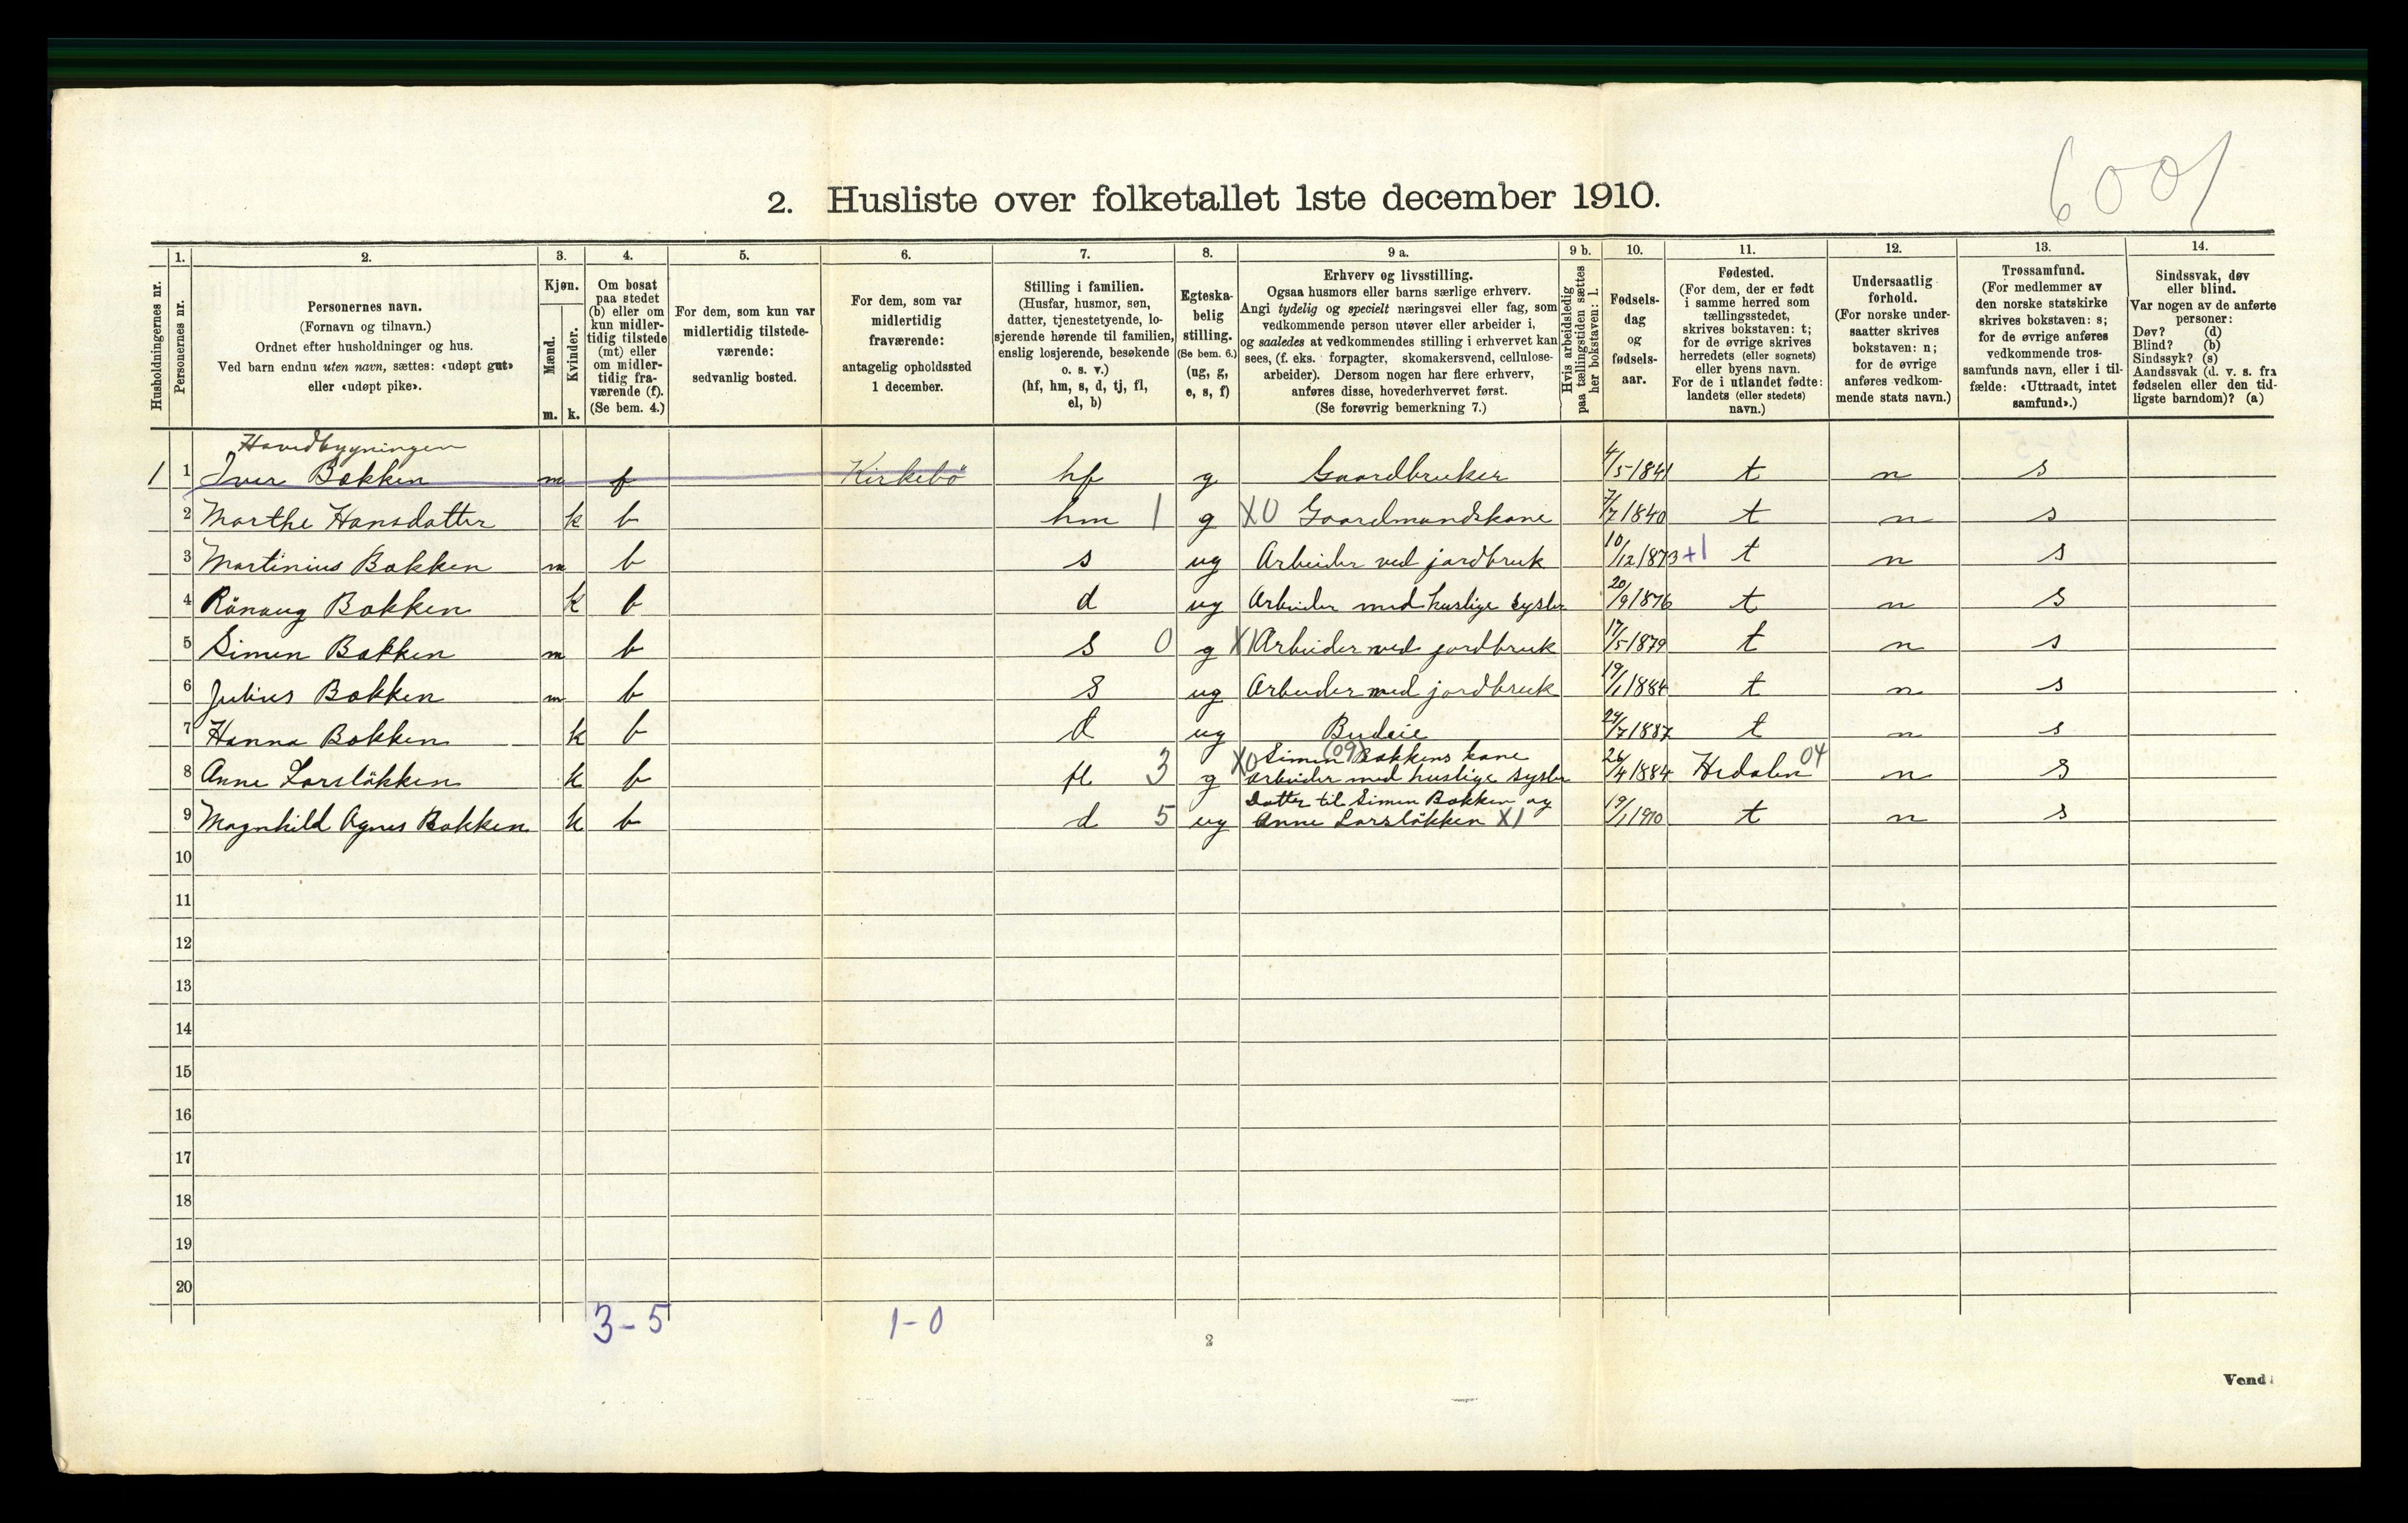 6001
2. Husliste over folketallet 1ste december 1910.
Husholdningernes nr.
1.
Personernes nr.
2.
Personernes navn.
(Fornavn og tilnavn.)
Ordnet efter husholdninger og hus.
Ved barn endnu uten navn, sættes: «udøpt gut»
eller «udøpt pike».
3.
Kjøn.
Mænd.
Kvinder.
m. k.
4.
Om bosat
paa stedet
(b) eller om
kun midler-
tidig tilstede
(mt) eller
om midler-
tidig fra-
værende (f).
(Se bem. 4.)
5.
For dem, som kun var
midlertidig tilstede-
værende:
sedvanlig bosted.
6.
For dem, som var
midlertidig
fraværende:
antagelig opholdssted
1 december.
7.
Stilling i familien.
(Husfar, husmor, søn,
datter, tjenestetyende, lo-
sjerende hørende til familien,
enslig losjerende, besøkende
o. s. v.)
(hf, hm, s, d, tj, fl,
el, b)
8.
Egteska-
belig
stilling.
(Se bem. 6.)
(ug, g,
e, s, f)
9 a.
Erhverv og livsstilling.
Ogsaa husmors eller barns særlige erhverv.
Angi tydelig og specielt næringsvei eller fag, som
vedkommende person utøver eller arbeider i,
og saaledes at vedkommendes stilling i erhvervet kan
sees, (f. eks. forpagter, skomakersvend, cellulose-
arbeider). Dersom nogen har flere erhverv,
anføres disse, hovederhvervet først.
(Se forøvrig bemerkning 7.)
9 b.
Hvis arbeidsledig
paa tællingstiden sættes
her bokstaven: l.
10.
Fødsels-
dag
og
fødsels-
aar.
11.
Fødested.
(For dem, der er født
i samme herred som
tællingsstedet,
skrives bokstaven: t;
for de øvrige skrives
herredets (eller sognets)
eller byens navn.
For de i utlandet fødte:
landets (eller stedets)
navn.)
12.
Undersaatlig
forhold.
(For norske under-
saatter skrives
bokstaven: n;
for de øvrige
anføres vedkom-
mende stats navn.)
13.
Trossamfund.
(For medlemmer av
den norske statskirke
skrives bokstaven: s;
for de øvrige anføres
vedkommende tros-
samfunds navn, eller i til-
fælde: «Uttraadt, intet
samfund».)
14.
Sindssvak, døv
eller blind.
Var nogen av de anførte
personer:
Døv? (d)
Blind? (b)
Sindssyk? (s)
Aandssvak (d. v. s. fra
fødselen eller den tid-
ligste barndom)? (a)
Hovedbygningen
1 1 Iver Bakken m f Kirkebö hf g Gaardbruker 4/5 1841 t n s
2 Marthe Hansdatter k b hm 1 g X0 Gaardmandskone 7/7 1840 t n s
3 Martinius Bakken m b s ug Arbeider ved jordbruk 10/12 1873 +1 t n s
4 Rönaug Bakken k b d ug Arbeider med huslige sysler 20/9 1876 t n s
5 Simen Bakken m b s 0 g X1 Arbeider ved jordbruk 17/5 1879 t n s
6 Julius Bakken m b s ug Arbeider med jordbruk 19/1 1884 t n s
7 Hanna Bakken k b d ug Budeie 24/7 1887 t n s
8 Anne Larslökken k b fl 3 g X0 Simen (09) Bakkens kone
arbeider med huslige sysler 26/4 1884 Hedalen 04 n s
9 Magnhild Agnes Bakken k b d 5 ug Datter til Simen Bakken og
Anne Larslökken X1 19/1 1910 t n s
10
11
12
13
14
15
16
17
18
19
20
3-5
1-0
2
Vend!